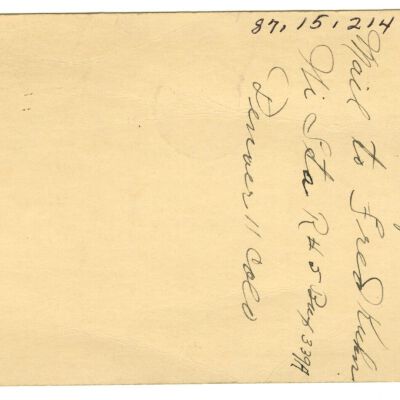 87.15.214
Mail to Fred Kuhn
Ni Sta Rt 5 Box 339A
Denver 11 Colo